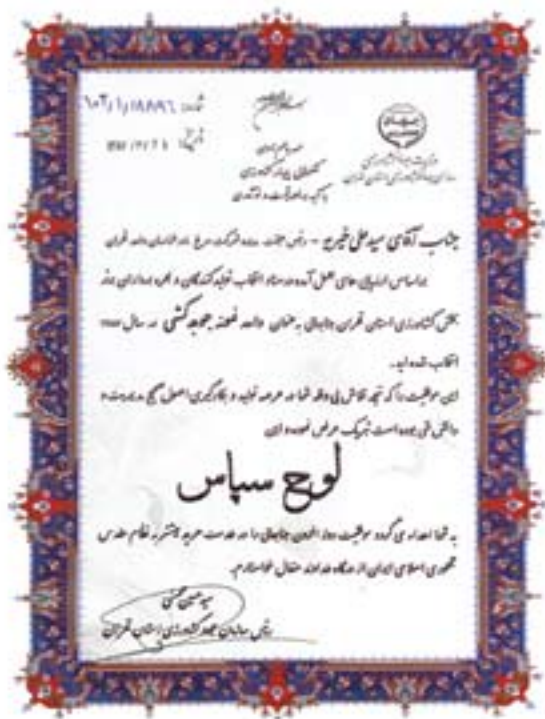 شماره: ۱۰۲/۱/۱۸۸۹۶
تاریخ:
وزارت جهاد کشاورزی
سازمان جهاد کشاورزی استان تهران
جناب آقای سید علی - رئیس هیئت مدیره شرکت مرغ واحد تهران
براساس ارزیابی های بعمل آمده در ستاد انتخاب تولید کنندگان و بهره برداران برتر
بخش کشاورزی استان تهران جنابعالی به عنوان واحد نمونه جوجه کشی در سال
انتخاب شده اید.
این موفقیت را که نتیجه تلاش بی وقفه شما در عرصه تولید و بکارگیری اصول صحیح مدیریت و
دانش فنی بوده است تبریک عرض نموده و این
لوح سپاس
به شما اهداء می گردد موفقیت روز افزون جنابعالی را در خدمت هر چه بیشتر به نظام مقدس
جمهوری اسلامی ایران از درگاه خداوند متعال خواستارم.
رئیس سازمان جهاد کشاورزی استان تهران